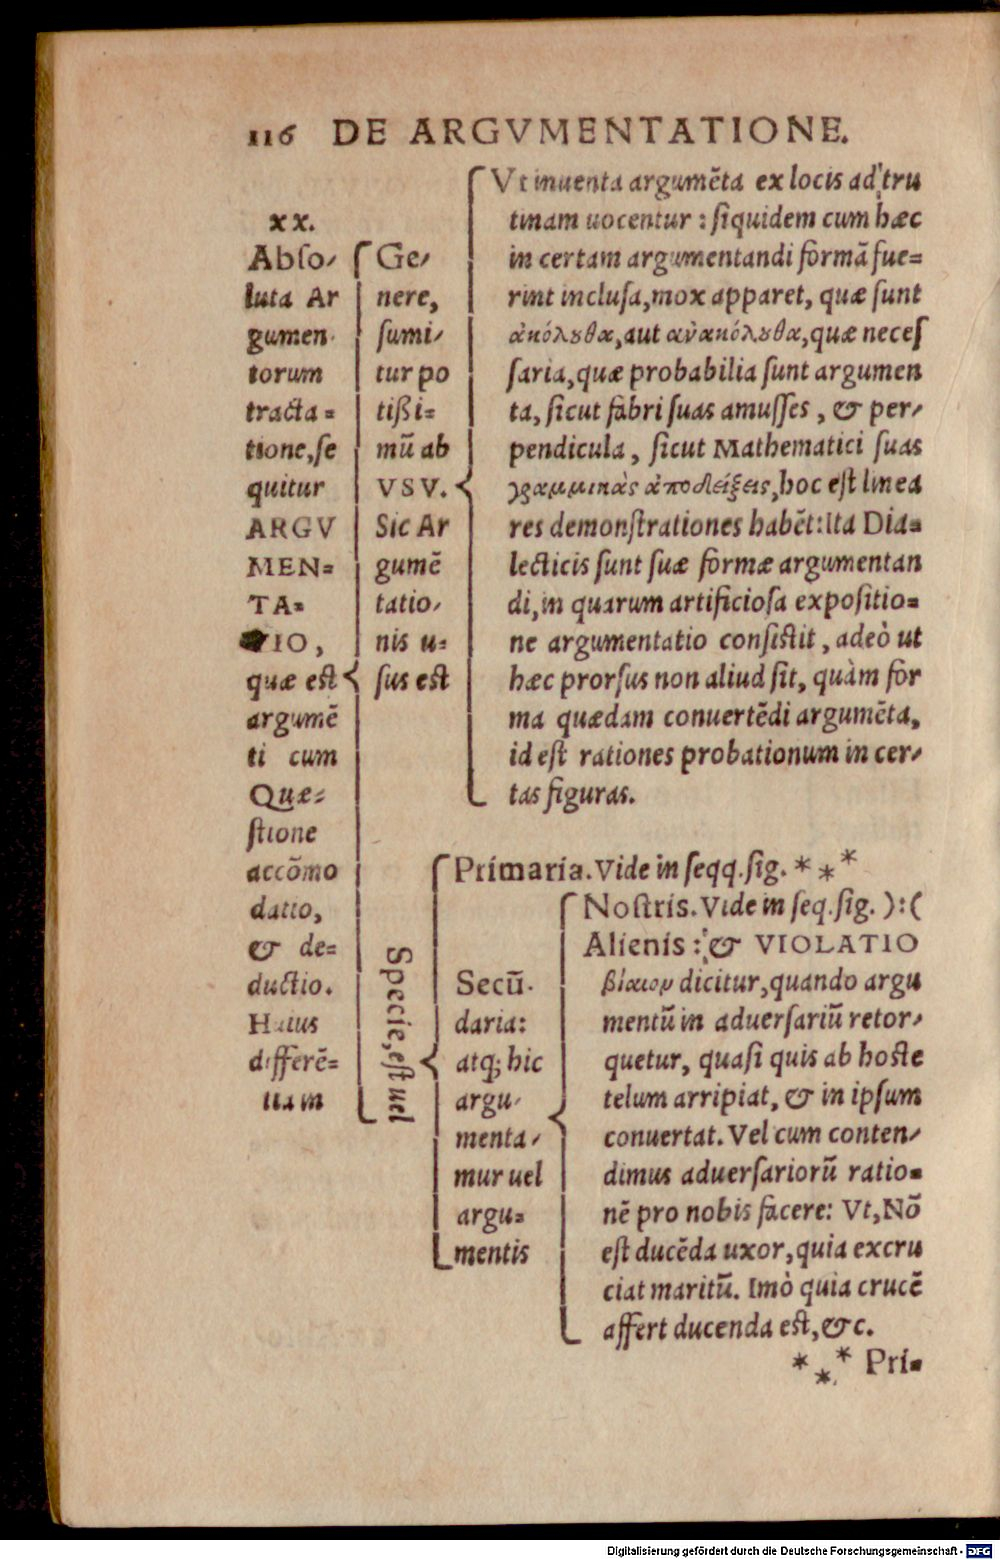 116 DE ARGVMENTATIONE.
xx.
Abso-
luta Ar
gumen
torum
tracta=
tione, se
quitur
ARGV
MEN=
TA=
TIO,
quæ est
argumẽ
ti cum
Quæ=
stione
accõmo
datio,
& de=
ductio.
Huius
differẽ=
tiam
Ge-
nere,
sumi-
tur po
tißi=
mũ ab
VSV.
Sic Ar
gumẽ
tatio-
nis u=
sus est
Vt inuenta argumẽta ex locis ad tru
tinam uocentur : siquidem cum hæc
in certam argumentandi formã fue=
rint inclusa, mox apparet, quæ sunt
ἀκόλȣθα, aut ἀνακόλȣθα, quæ neces
saria, quæ probabilia sunt argumen
ta, sicut fabri suas amusses , & per-
pendicula , sicut Mathematici suas
γραμμικὰς ἀποδείξεις, hoc est linea
res demonstrationes habẽt: Ita Dia=
lecticis sunt suæ formæ argumentan
di, in quarum artificiosa expositio=
ne argumentatio consistit , adeò ut
hæc prorsus non aliud sit, quàm for
ma quædam conuertẽdi argumẽta,
id est rationes probationum in cer-
tas figuras.
Specie, est uel
Primaria. Vide in seqq. sig. * * *
Secũ-
daria:
atq; hic
argu-
menta-
mur uel
argu=
mentis
Nostris. Vide in seq. sig. ):(
Alienis : & VIOLATIO
βίαιον dicitur, quando argu
mentũ in aduersariũ retor-
quetur, quasi quis ab hoste
telum arripiat, & in ipsum
conuertat. Vel cum conten-
dimus aduersariorũ ratio=
nẽ pro nobis facere: Vt, Nõ
est ducẽda uxor, quia excru
ciat maritũ. Imò quia crucẽ
affert ducenda est, &c.
* * * Pri=
Digitalisierung gefördert durch die Deutsche Forschungsgemeinschaft - DFG